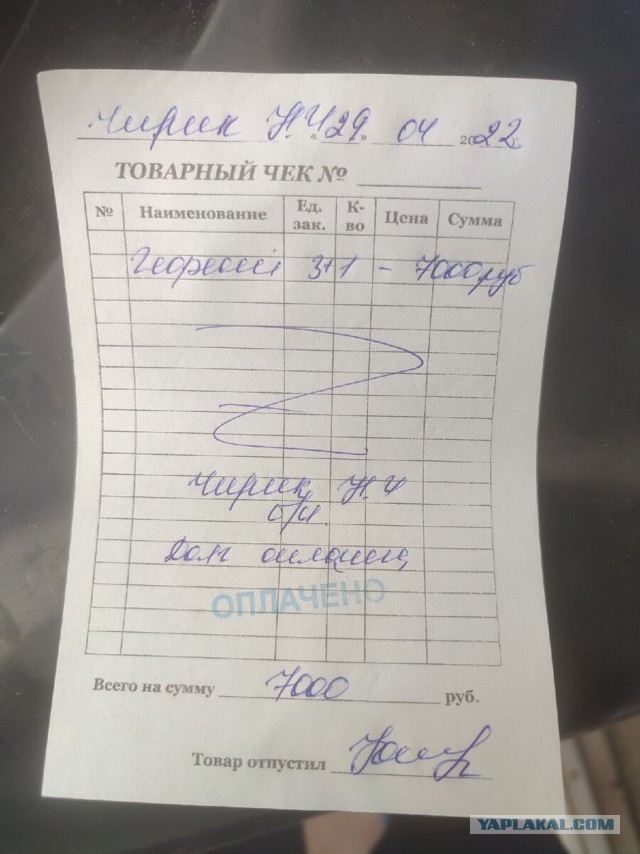 Чирик Н.Ч. « 29 » 04 2022 г.
ТОВАРНЫЙ ЧЕК №
№ Наименование Ед. зак. К-во Цена Сумма
3+1 – 7000 руб
Чирик Н.Ч
б/н.
Долг оплачен,
ОПЛАЧЕНО
Всего на сумму 7000 руб.
Товар отпустил
YAPLAKAL.COM